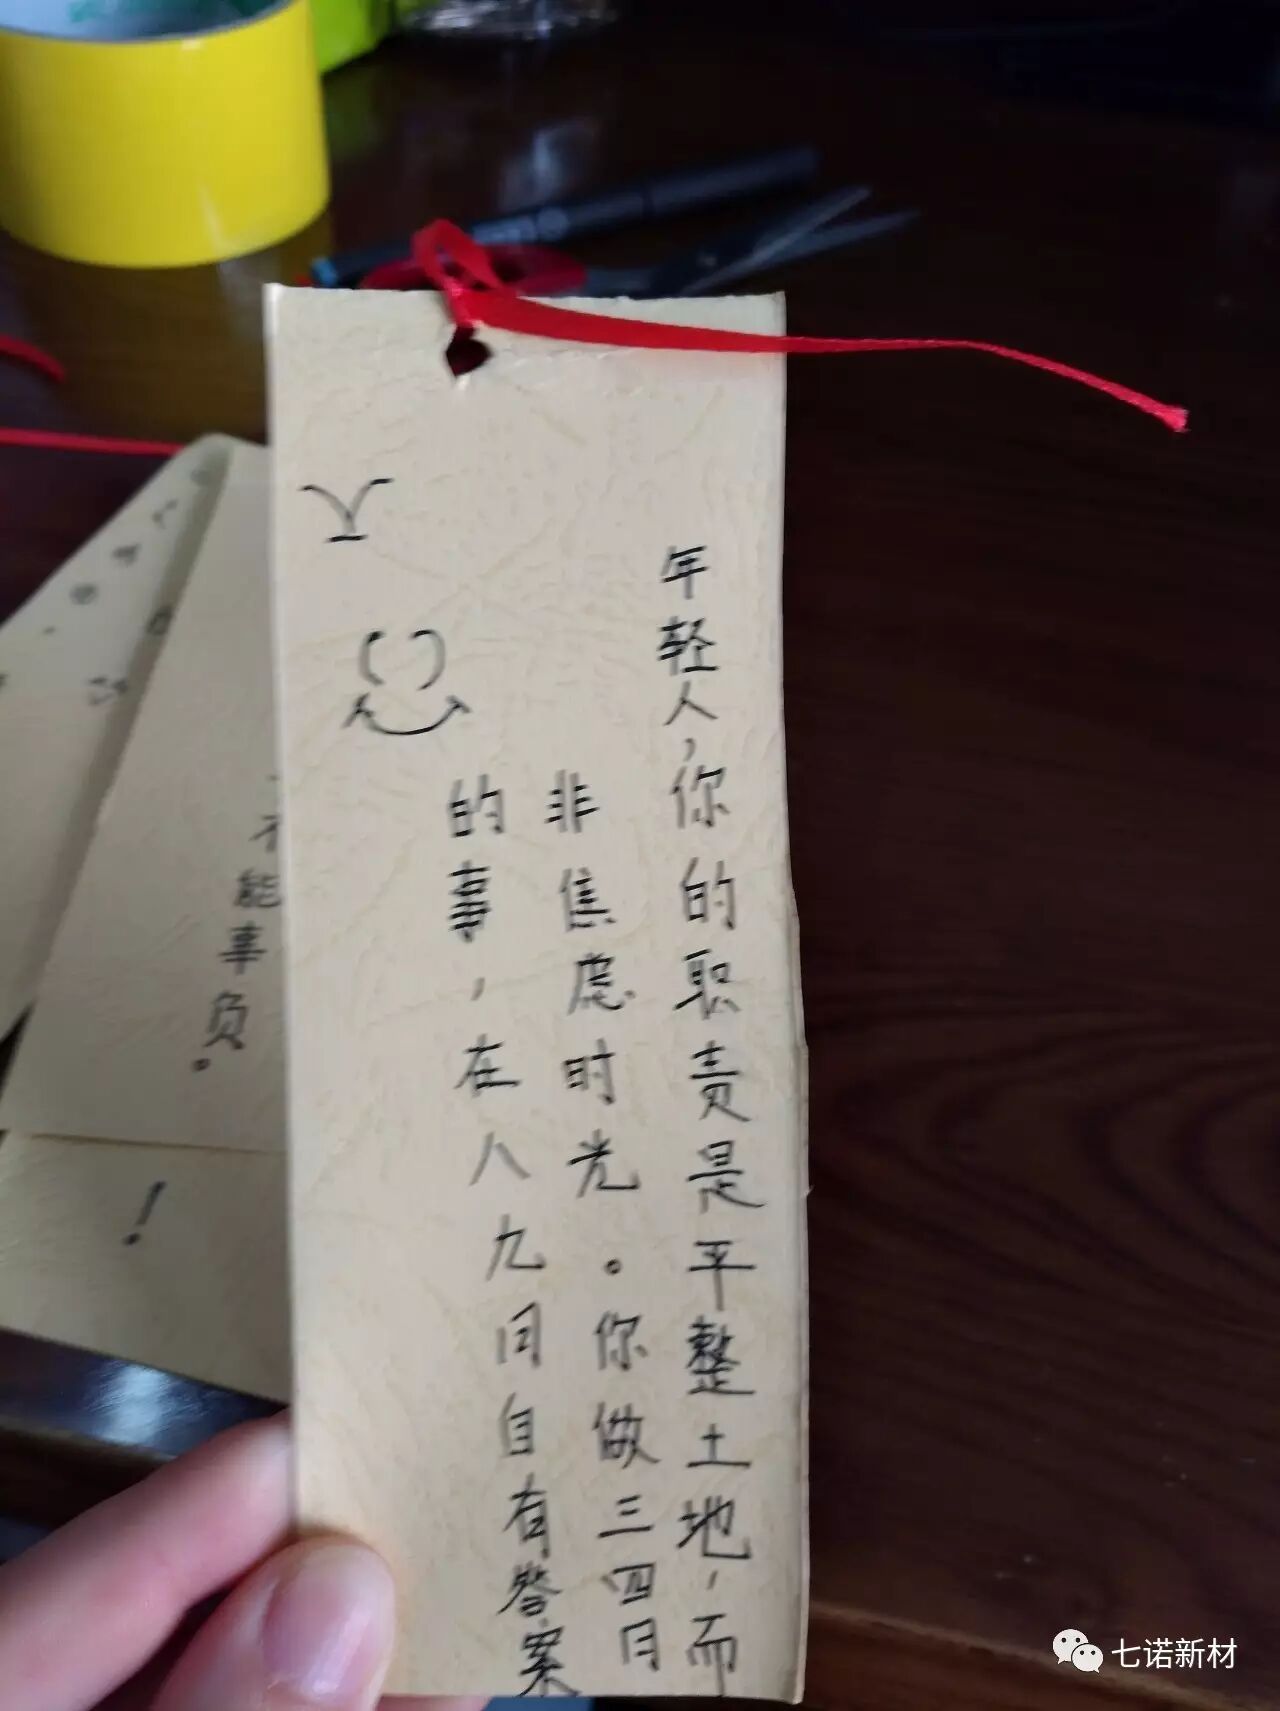 年轻人，你的职责是平整土地，而
非焦虑时光。你做三四月
的事，在八九月自有答案
不能事
负。
！
七诺新材